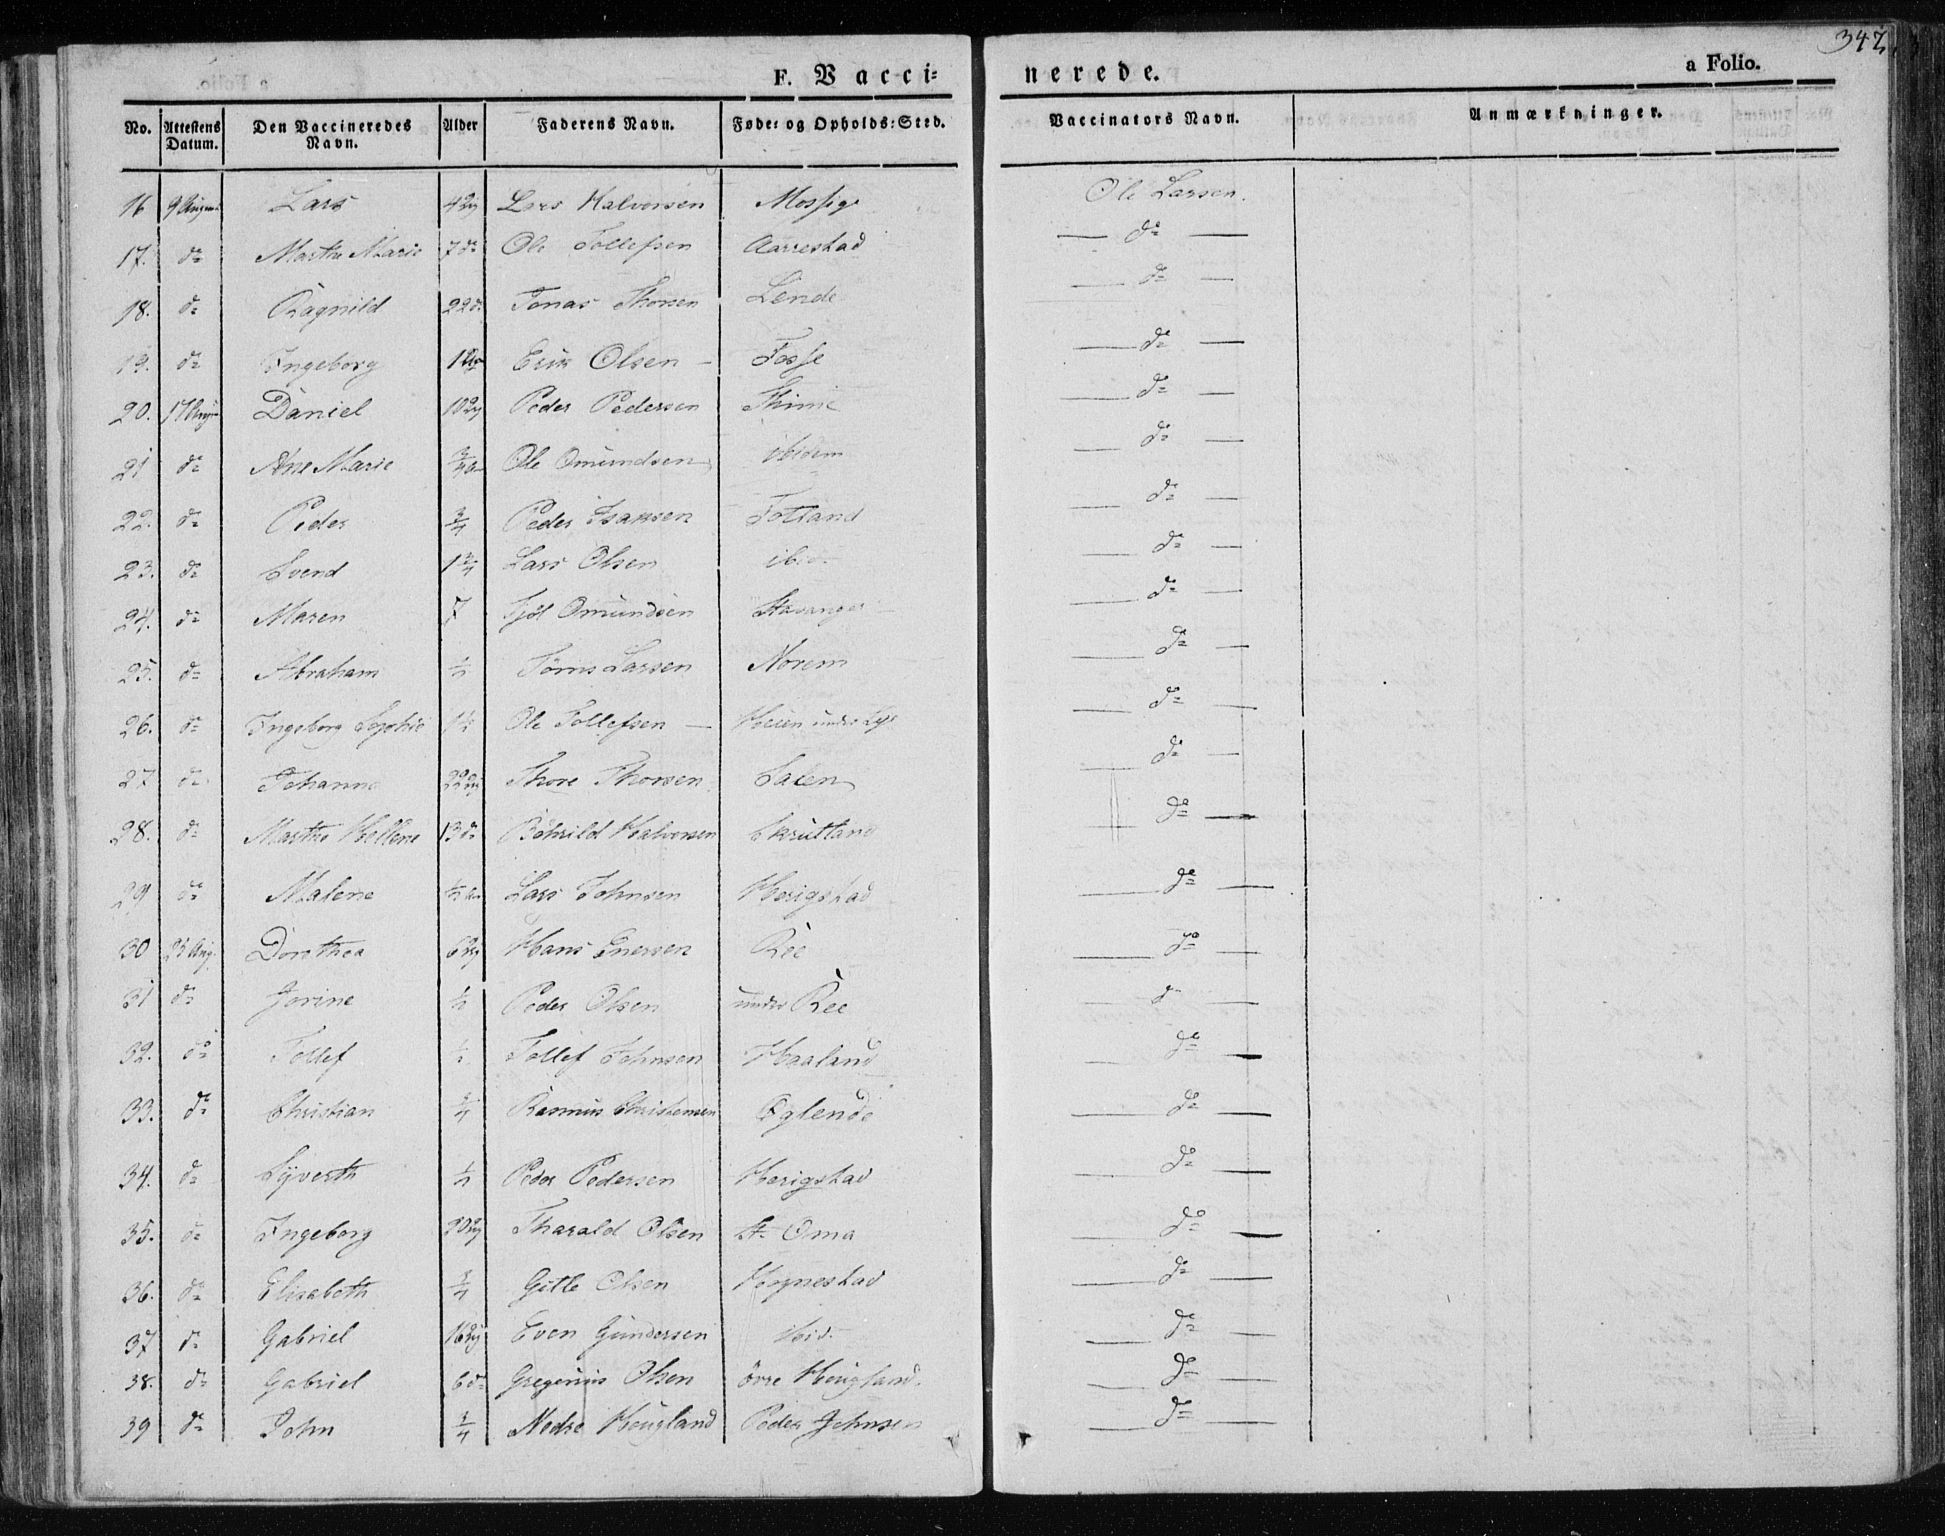 342.
F. Vacci=
nerede.
a Folio.
No. Attestens Datum. Den Vaccineredes Navn. Alder Faderens Navn. Føde= og Opholds=Sted. Vaccinators Navn. Anmærkninger.
16 9 Lars Lars Halvorsen Mossige Ole Larsen.
17. do Marthe Marie 7 do Ole Tollefsen Aarrestad — do —
18. do Ragnild 22 do Jonas Thorsen Lende — do —
19. do Ingeborg Erik Olsen — Fosse — do —
20. 17 Daniel Peder Pedersen Thime — do —
21 do Ane Marie Ole Omundsen ibidem — do —
22. do Peder 3/4 Peder Isaksen Fotland — do —
23. do Svend 1 3/4 Lars Olsen ibid. — do —
24. do Maren Omundsen Stavanger — do —
25. do Abraham 1/2 Larsen Norem — do —
26. do Ingeborg Sophie 1 1/2 Ole Tollefsen — under Lye — do —
27 do Johanne Thore Thorsen — do —
28. do Marthe Hellene 13 do Halvorsen Skrutland — do —
29 do Malene Lars Johnsen Herigstad — do —
30 23 Aug. Dorothea Hans Enersen Ree — do —
31 do Jorine 1/2 Peder Olsen under Ree — do —
32. do Tollef 1/2 Tollef Johnsen Haaland — do —
33. do Christian 3/4 Rasmus Christensen Eglende — do —
34. do Syverth 1/2 Peder Pedersen Herigstad — do —
35. do Ingeborg Tharald Olsen St. Oma — do —
36. do Elisabeth 3/4 Gitle Olsen Hognestad — do —
37 do Gabriel Even Gundersen ibid. — do —
38. do Gabriel 6 do Gregorius Olsen övre Heugland. — do —
39 do John 3/4 Nedre Heugland Peder Johnsen — do —